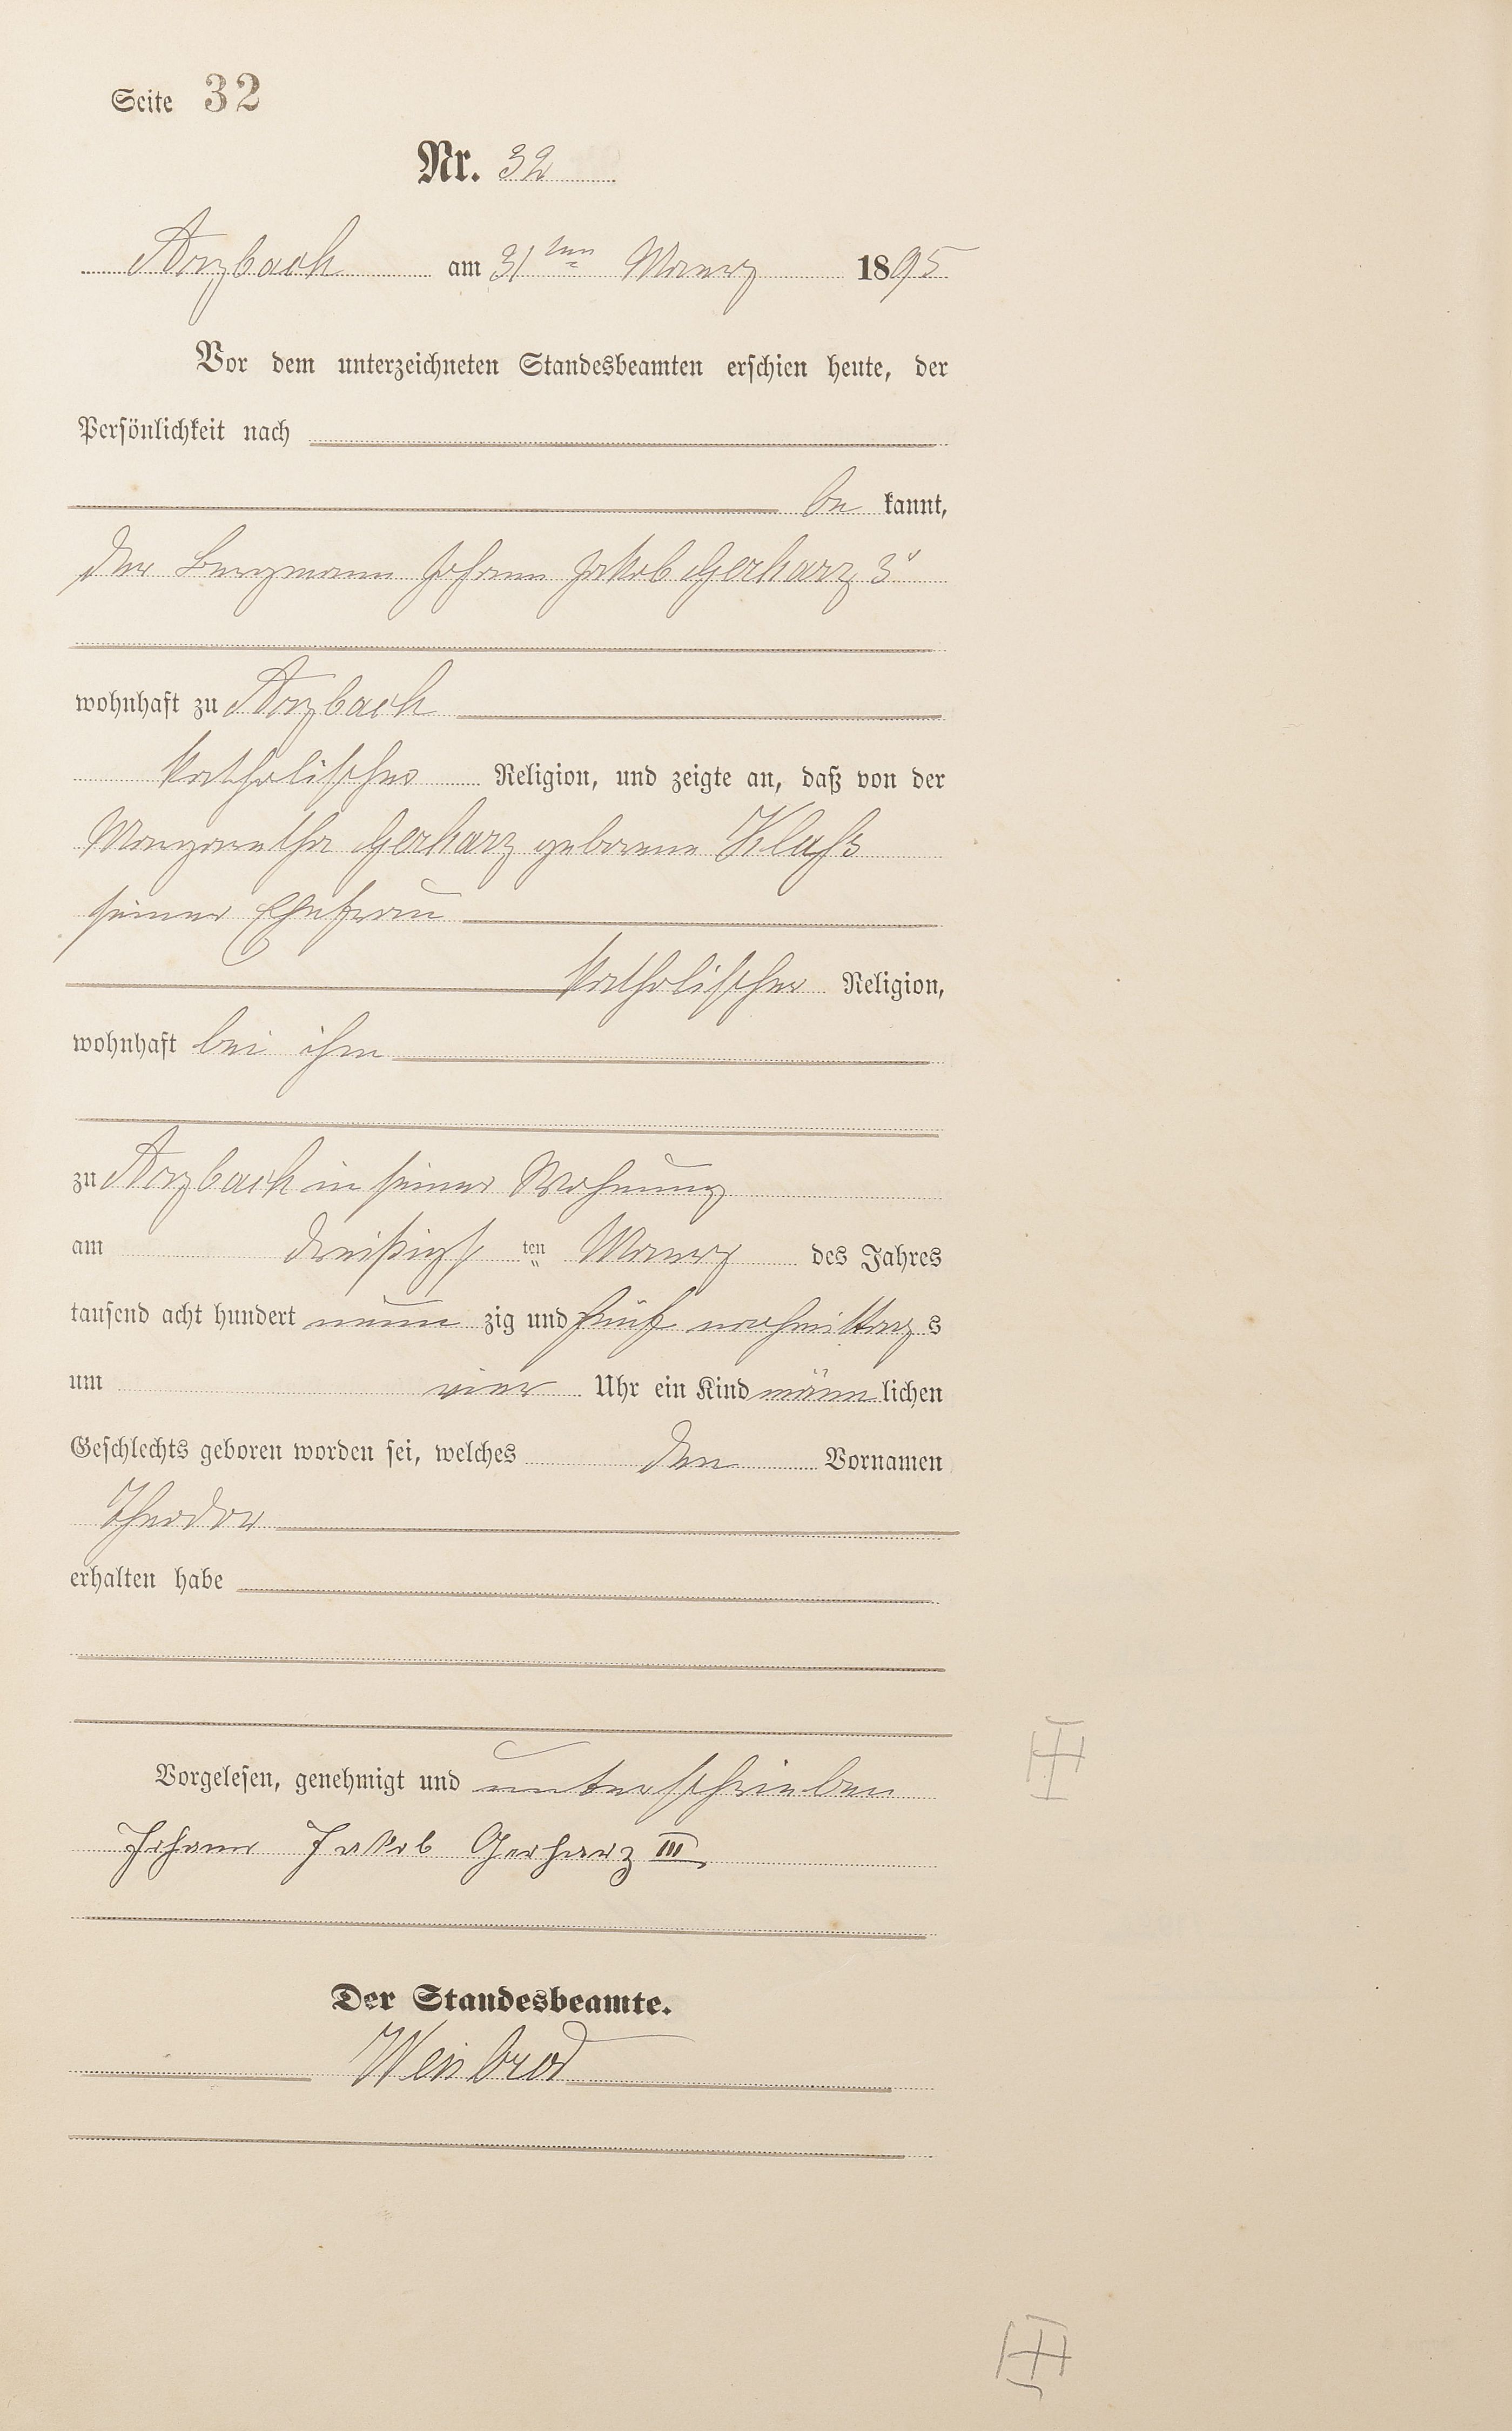 Seite 32
Nr. 32
Arzbach am 31ten Maerz 1895
Vor dem unterzeichneten Standesbeamten erschien heute, der
Persönlichkeit nach
be kannt,
der Bergmann Johann Jakob Gerharz 3r
wohnhaft zu Arzbach
katholischer Religion, und zeigte an, daß von der
Margaretha Gerharz geborene Klaß
seiner Ehefrau
katholischer Religion,
wohnhaft bei ihm
zu Arzbach in seiner Wohnung
am dreißigst ten Maerz des Jahres
tausend acht hundert neun zig und fünf nachmittag s
um vier Uhr ein Kind männ lichen
Geschlechts geboren worden sei, welches den Vornamen
Theodor
erhalten habe
Vorgelesen, genehmigt und unterschrieben
Johann Jakob Gerharz III
Der Standesbeamte.
Weinbrod